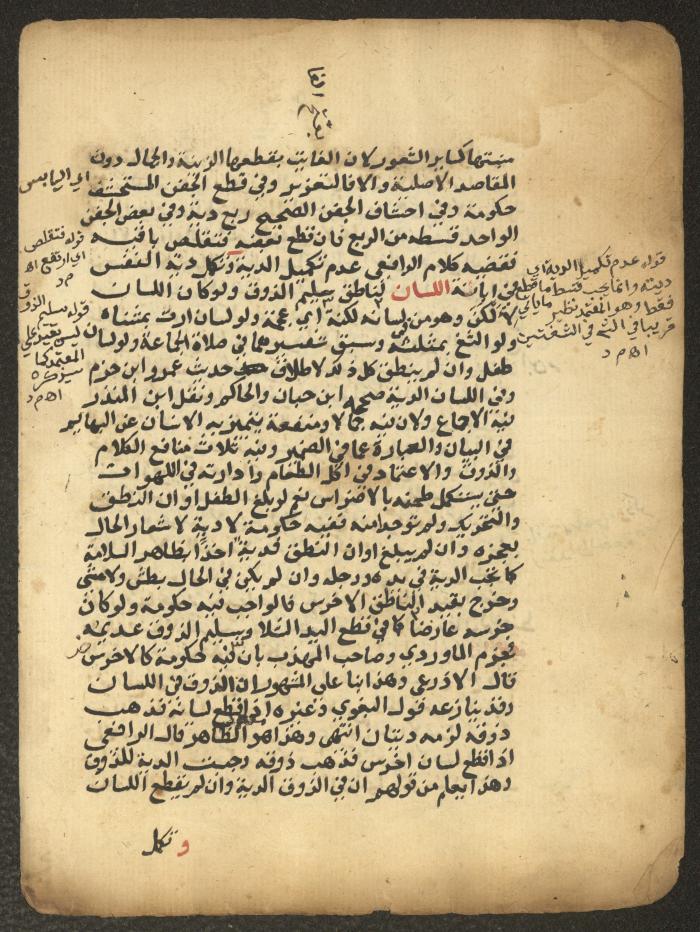 منبتها كسائر الشعور لان الفائت بقطعها الزينة والجمال دون
المقاصد الاصلية والا فالتعزير وفي قطع الجفن المستحشف
حكومة وفي احشاف الجفن الصحيح ربع دية وفي بعض الجفن
الواحد قسطه من الربع فان قطع بعضه فتقلص باقيه
فقضية كلام الرافعي عدم تكميل الدية وتكمل دية النفس
في ابانة اللسان لناطق سليم الذوق ولو كان اللسان
لالكن وهو من لسانه لكنة اي عجمة ولو لسان ارت بمثناة
ولو الثغ بمثلثة وسبق تفسيرهما في صلاة الجماعة ولو لسان
طفل وان لم ينطق كل ذلك لاطلاق حديث عمرو ابن حزم
وفي اللسان الدية صححه ابن حبان والحاكم ونقل ابن المنذر
فيه الاجماع ولان فيه جمالا ومنفعة يتميز به الانسان عن البهائم
في البيان والعبارة عما في الضمير وفيه ثلاث منافع الكلام
والذوق والاعتماد في اكل الطعام وادارته في اللهوات
حتى يستكمل طحنه بالاضراس نعم لو بلغ الطفل اوان النطق
والتحريك ولم يوجد امنه ففيه حكومة لا دية لاشعار الحال
بعجزه وان لم يبلغ اوان النطق فدية اخذا بظاهر السلامة
كما تجب الدية في يده ورجله وان لم يكن في الحال بطش ولا مشي
وخرج بقيد الناطق الاخرس فالواجب فيه حكومة ولو كان
خرسه عارضا كما في قطع اليد الشلا وبسليم الذوق عديمه
فجزم الماوردي وصاحب المهذب بان فيه لحكومة كالاخرس
قال الاذرعي وهذا بنا على المشهور ان الذوق في اللسان
وقد ينازعه قول البغوي وغيره اذا قطع لسانه فذهب
ذوقه لزمه ديتان انتهى وهذا هو الظاهر قال الرافعي
اذا قطع لسان اخرس فذهب ذوقه وجبت الدية للذوق
وهذا يعلم من قولهم ان في الذوق الدية وان لم يقطع اللسان
وتكمل
اي اليابس
قوله فتقلص
اي ارتفع اه
م د
قوله سليم الذوق
ليس بقيد على
المعتمد كما
سيذكره
اه م د
قوله عدم تكميل الدية اي
ديته وانما يجب قسط ما قطع
فقط وهو المعتمد نظير ما ياتي
قريبا في الشفتين
اه م د